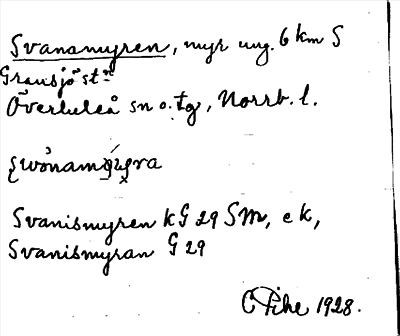 Svanamyren, myr ung. 6 km S
Gransjö st:n
Överluleå sn o. tg, Norrb. l.
Svanismyren kG 29 SM, ek,
Svanismyran G 29
C Pihe 1928.